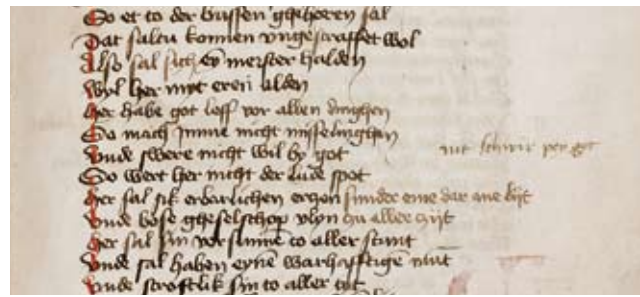 So et to der bussen ghehoren sal
Dat saltu konnen vngestraffet wol
Also sal sich eyn meyster halden
Wyl her myt eren alden
Her habe got leff vor allen dinghen
So mach ymme nicht misselinghen
Vnde swere nicht wil by got
nit schwir per got
So wert her nicht der lude spot
Her sal sik erbarlichen ergon sunder eine dar ane lijt
Vnde bose gheselschop vlyn zu aller zijt
Her sal sin vorsunne to aller stunt
Vnde sal haben eyne warhafftige munt
Vnde strofflik sin to aller tijt